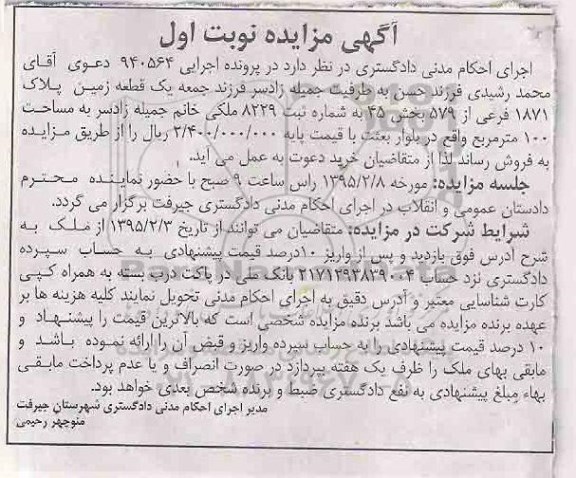 آگهی مزایده نوبت اول
اجرای احکام مدنی دادگستری در نظر دارد در پرونده اجرایی ۹۴۰۵۶۴ دعوی آقای
محمد رشیدی فرزند حسن به طرفیت جمیله زادسر فرزند جمعه یک قطعه زمین پلاک
۱۸۷۱ فرعی از ۵۷۹ بخش ۴۵ به شماره ثبت ۸۲۲۹ ملکی خانم جمیله زادسر به مساحت
۱۰۰ مترمربع واقع در بلوار بعثت با قیمت پایه ۲/۴۰۰/۰۰۰/۰۰۰ ریال را از طریق مزایده
به فروش رساند لذا از متقاضیان خرید دعوت به عمل می آید.
جلسه مزایده: مورخه ۱۳۹۵/۲/۸ راس ساعت ۹ صبح با حضور نماینده محترم
دادستان عمومی و انقلاب در اجرای احکام مدنی دادگستری جیرفت برگزار می گردد.
شرایط شرکت در مزایده: متقاضیان می توانند از تاریخ ۱۳۹۵/۲/۳ از ملک به
شرح آدرس فوق بازدید و پس از واریز ۱۰درصد قیمت پیشنهادی به حساب سپرده
دادگستری نزد حساب بانک ملی در پاکت درب بسته به همراه کپی
کارت شناسایی معتبر و آدرس دقیق به اجرای احکام مدنی تحویل نمایند کلیه هزینه ها بر
عهده برنده مزایده می باشد برنده مزایده شخصی است که بالاترین قیمت را پیشنهاد و
۱۰ درصد قیمت پیشنهادی را به حساب سپرده واریز و قبض آن را ارائه نموده باشد و
مابقی بهای ملک را ظرف یک هفته بپردازد در صورت انصراف و یا عدم پرداخت مابقی
بهاء مبلغ پیشنهادی به نفع دادگستری ضبط و برنده شخص بعدی خواهد بود.
مدیر اجرای احکام مدنی دادگستری شهرستان جیرفت
منوچهر رحیمی